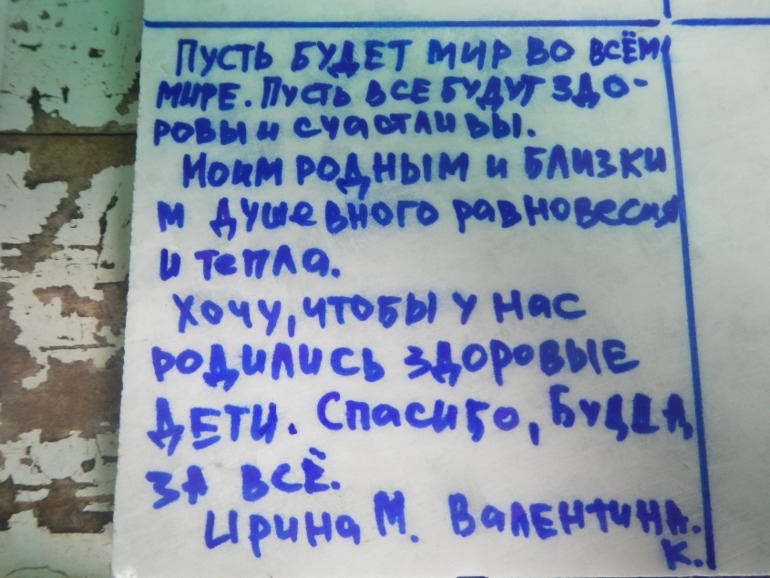 Пусть будет мир во всём
мире. Пусть все будут здо-
ровы и счастливы.
Моим родным и близки
м душевного равновесия
и тепла.
Хочу, чтобы у нас
родились здоровые
дети. Спасибо, Будда,
за всё.
Ирина М. Валентина.
К.